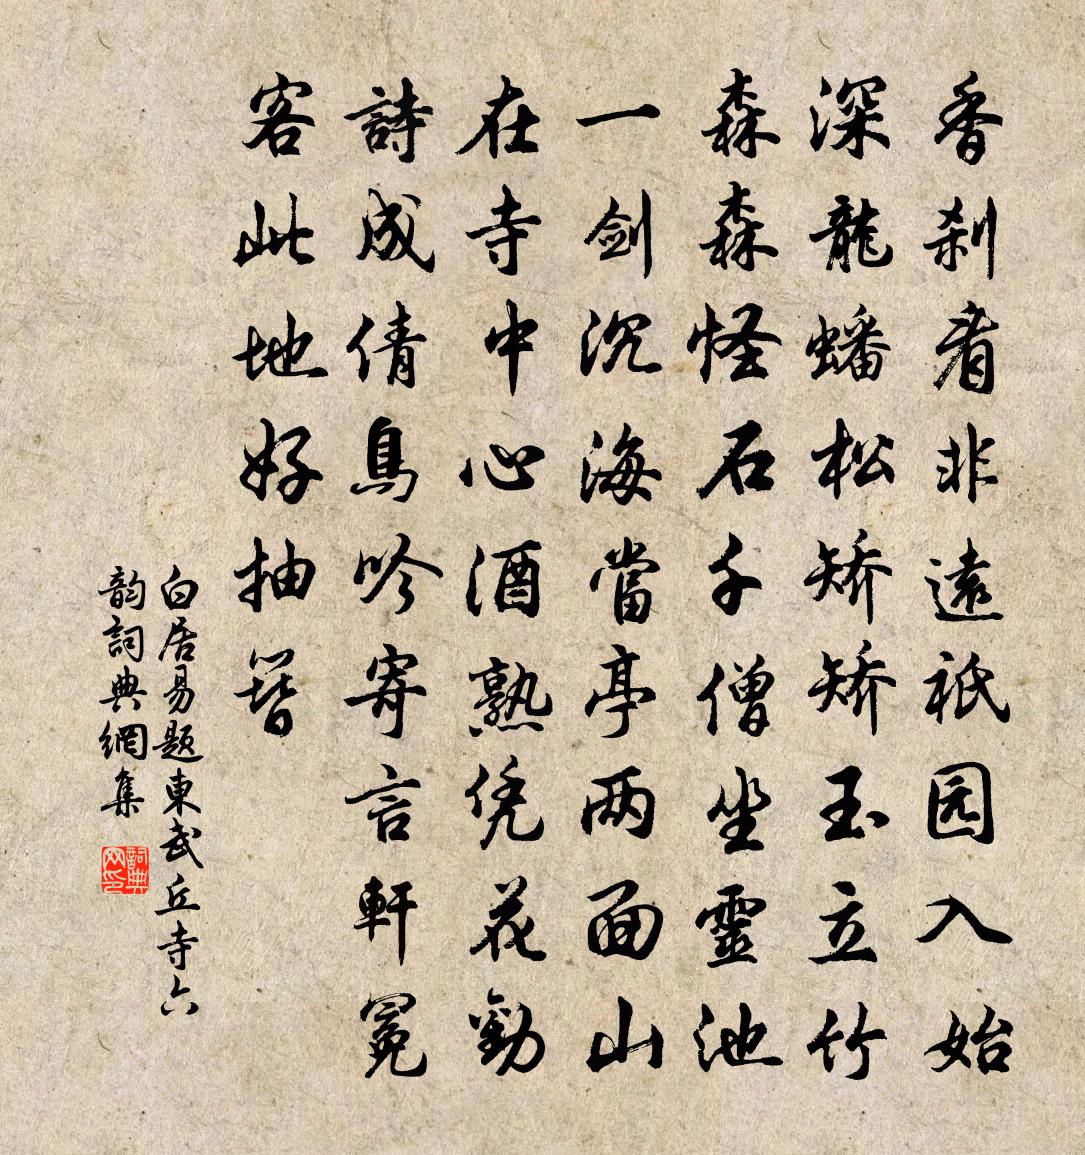 香刹看非遠祇园入始
深龍蟠松矫矫玉立竹
森森怪石千僧坐靈池
一劍沉海當亭两面山
在寺中心酒熟凭花勸
詩成倩鳥吟寄言軒冕
客此地好抽簪
白居易题東武丘寺六
韵詞典網集
詞典网印